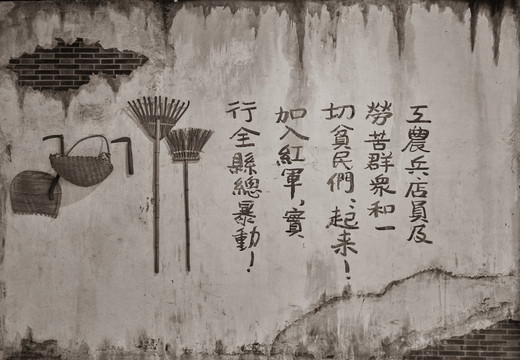 工農兵店員及
勞苦群衆和一
切貧民們、起来！
加入紅軍，實
行全縣總暴動！